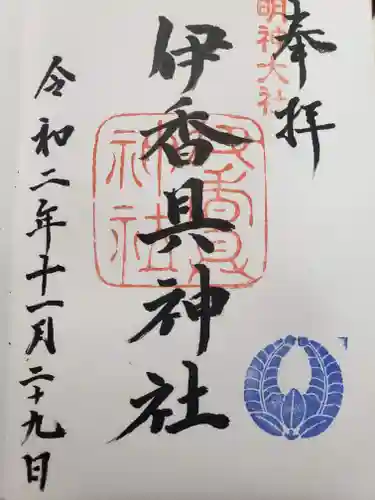 奉拝
明神大社
伊香具神社
伊香具
神社
令和二年十一月二十九日